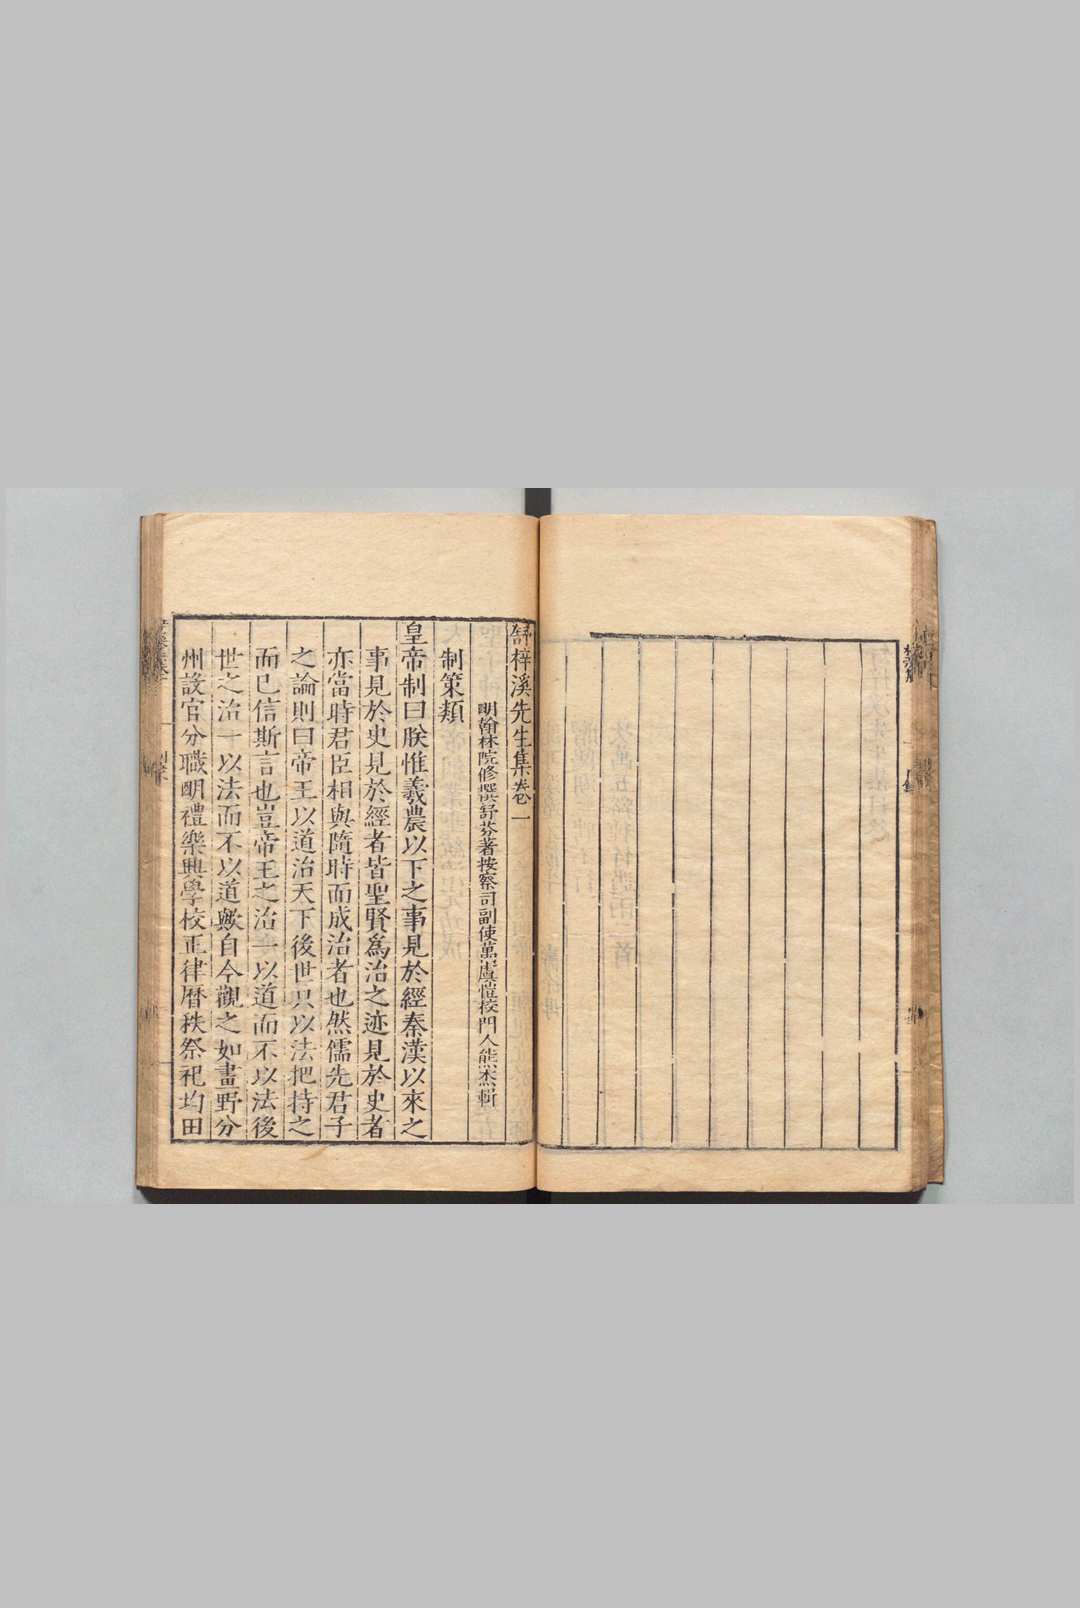 舒梓溪先生集卷一
明翰林院修撰舒芬著按察司副使萬虞愷校門人熊杰輯
制策類
皇帝制曰朕惟羲農以下之事見於經秦漢以來之
事見於史見於經者皆聖賢為治之迹見於史者
亦當時君臣相與隨時而成治者也然儒先君子
之論則曰帝王以道治天下後世只以法把持之
而已信斯言也豈帝王之治一以道而不以法後
世之治一以法而不以道歟自今觀之如畫野分
州設官分職明禮樂興學校正律曆秩祭祀均田